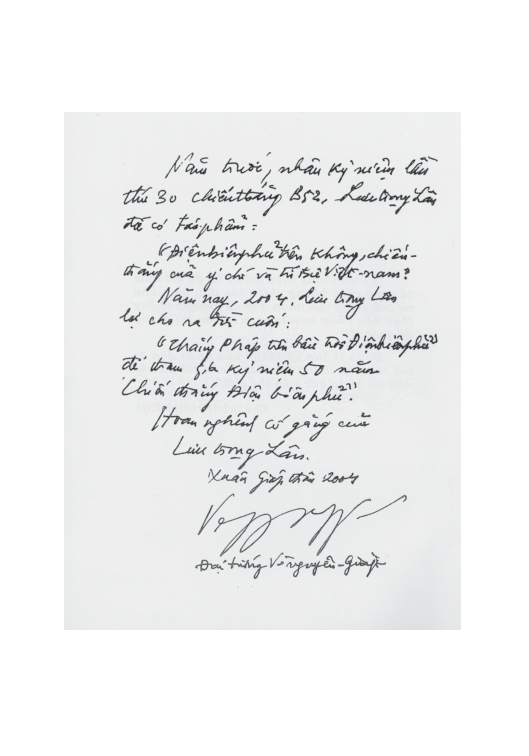 Năm trước, nhân kỷ niệm lần
thứ 30 chiến thắng B52, Lưu trọng Lân
đã có tác phẩm:
"Điện biên phủ trên không, chiến-
thắng của ý chí và trí tuệ Việt-nam"
Năm nay, 2004, Lưu trọng Lân
lại cho ra tiếp cuốn:
"Thắng Pháp trên bầu trời Điện biên phủ"
để tham gia kỷ niệm 50 năm
Chiến thắng Điện biên phủ.
Hoan nghênh cố gắng của
Lưu trọng Lân.
Xuân Giáp thân 2004
Đại tướng Võ nguyên-Giáp